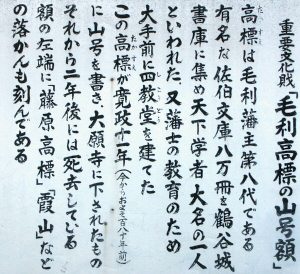 重要文化財「毛利高標の山号額」
高標は毛利藩主第八代である
有名な佐伯文庫八万冊を鶴谷城
書庫に集め天下学者大名の一人
といわれた又藩士の教育のため
大手前に四教堂を建てた
この高標が寛政十一年(今からおよそ百八十年前)
に山号を書き大願寺に下されたもの
それから二年後には死去している
額の左端に「藤原高標」「霞山」など
の落かんも刻んである